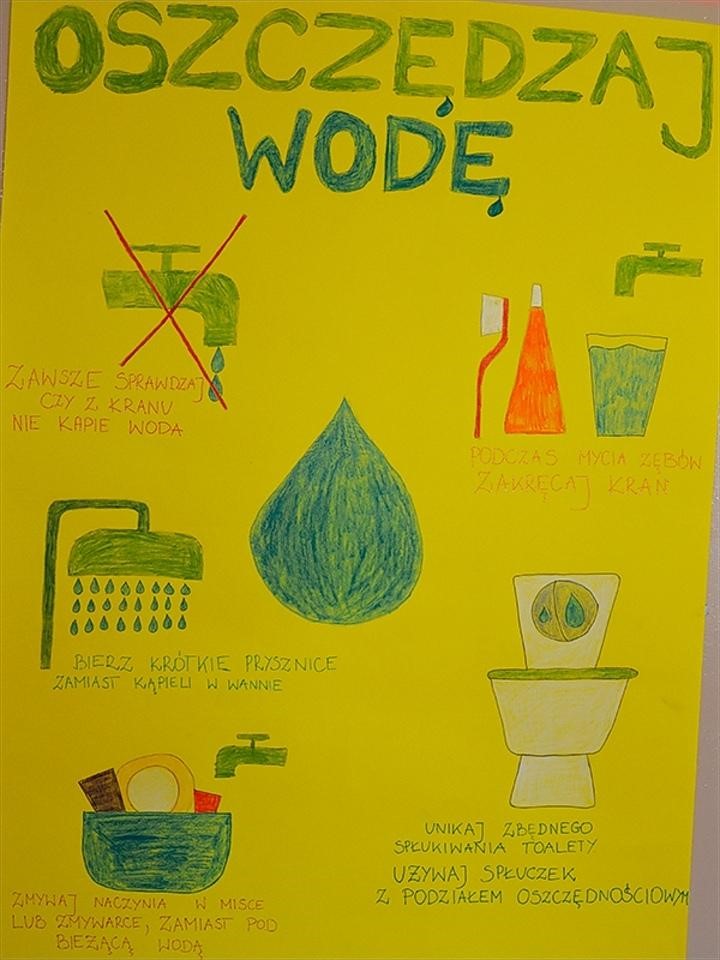 OSZCZĘDZAJ
WODĘ
ZAWSZE SPRAWDZAJ
CZY Z KRANU
NIE KAPIE WODA
PODCZAS MYCIA ZĘBÓW
ZAKRĘCAJ KRAN
BIERZ KRÓTKIE PRYSZNICE
ZAMIAST KĄPIELI W WANNIE
UNIKAJ ZBĘDNEGO
SPŁUKIWANIA TOALETY.
UŻYWAJ SPŁUCZEK
Z PODZIAŁEM OSZCZĘDNOŚCIOWYM
ZMYWAJ NACZYNIA W MISCE
LUB ZMYWARCE, ZAMIAST POD
BIEŻĄCĄ WODĄ